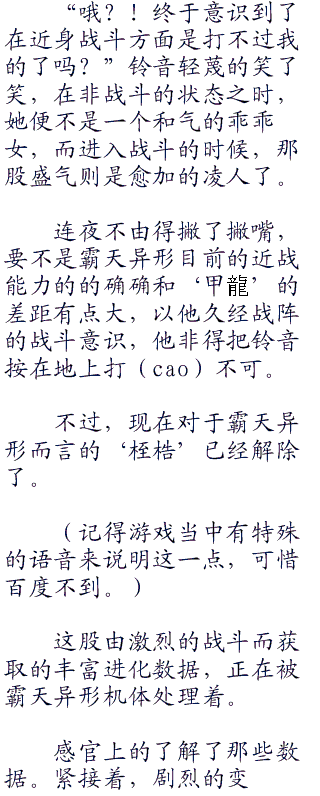 “哦？！终于意识到了
在近身战斗方面是打不过我
的了吗？”铃音轻蔑的笑了
笑，在非战斗的状态之时，
她便不是一个和气的乖乖
女，而进入战斗的时候，那
股盛气则是愈加的凌人了。
连夜不由得撇了撇嘴，
要不是霸天异形目前的近战
能力的的确确和‘甲龍’的
差距有点大，以他久经战阵
的战斗意识，他非得把铃音
按在地上打（cao）不可。
不过，现在对于霸天异
形而言的‘桎梏’已经解除
了。
（记得游戏当中有特殊
的语音来说明这一点，可惜
百度不到。）
这股由激烈的战斗而获
取的丰富进化数据，正在被
霸天异形机体处理着。
感官上的了解了那些数
据。紧接着，剧烈的变